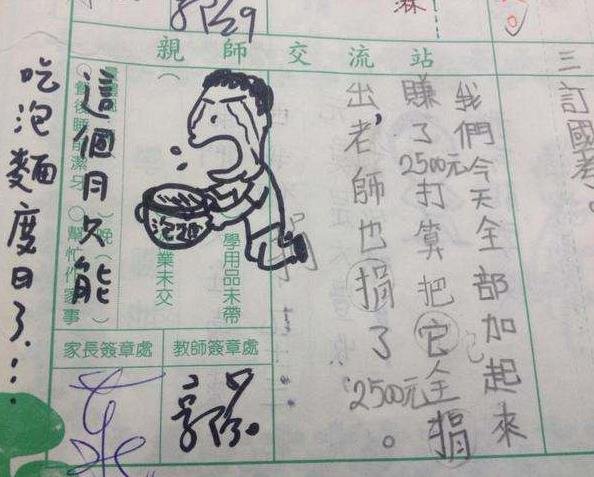 親師交流站
三訂國考。
我們今天全部加起來
賺了2500元打算把它全捐
出,老師也捐了2500元。
泡麵
學用品未帶
業未交
這個月只能
吃泡麵度日了...
幫忙作家事
教師簽章處
家長簽章處